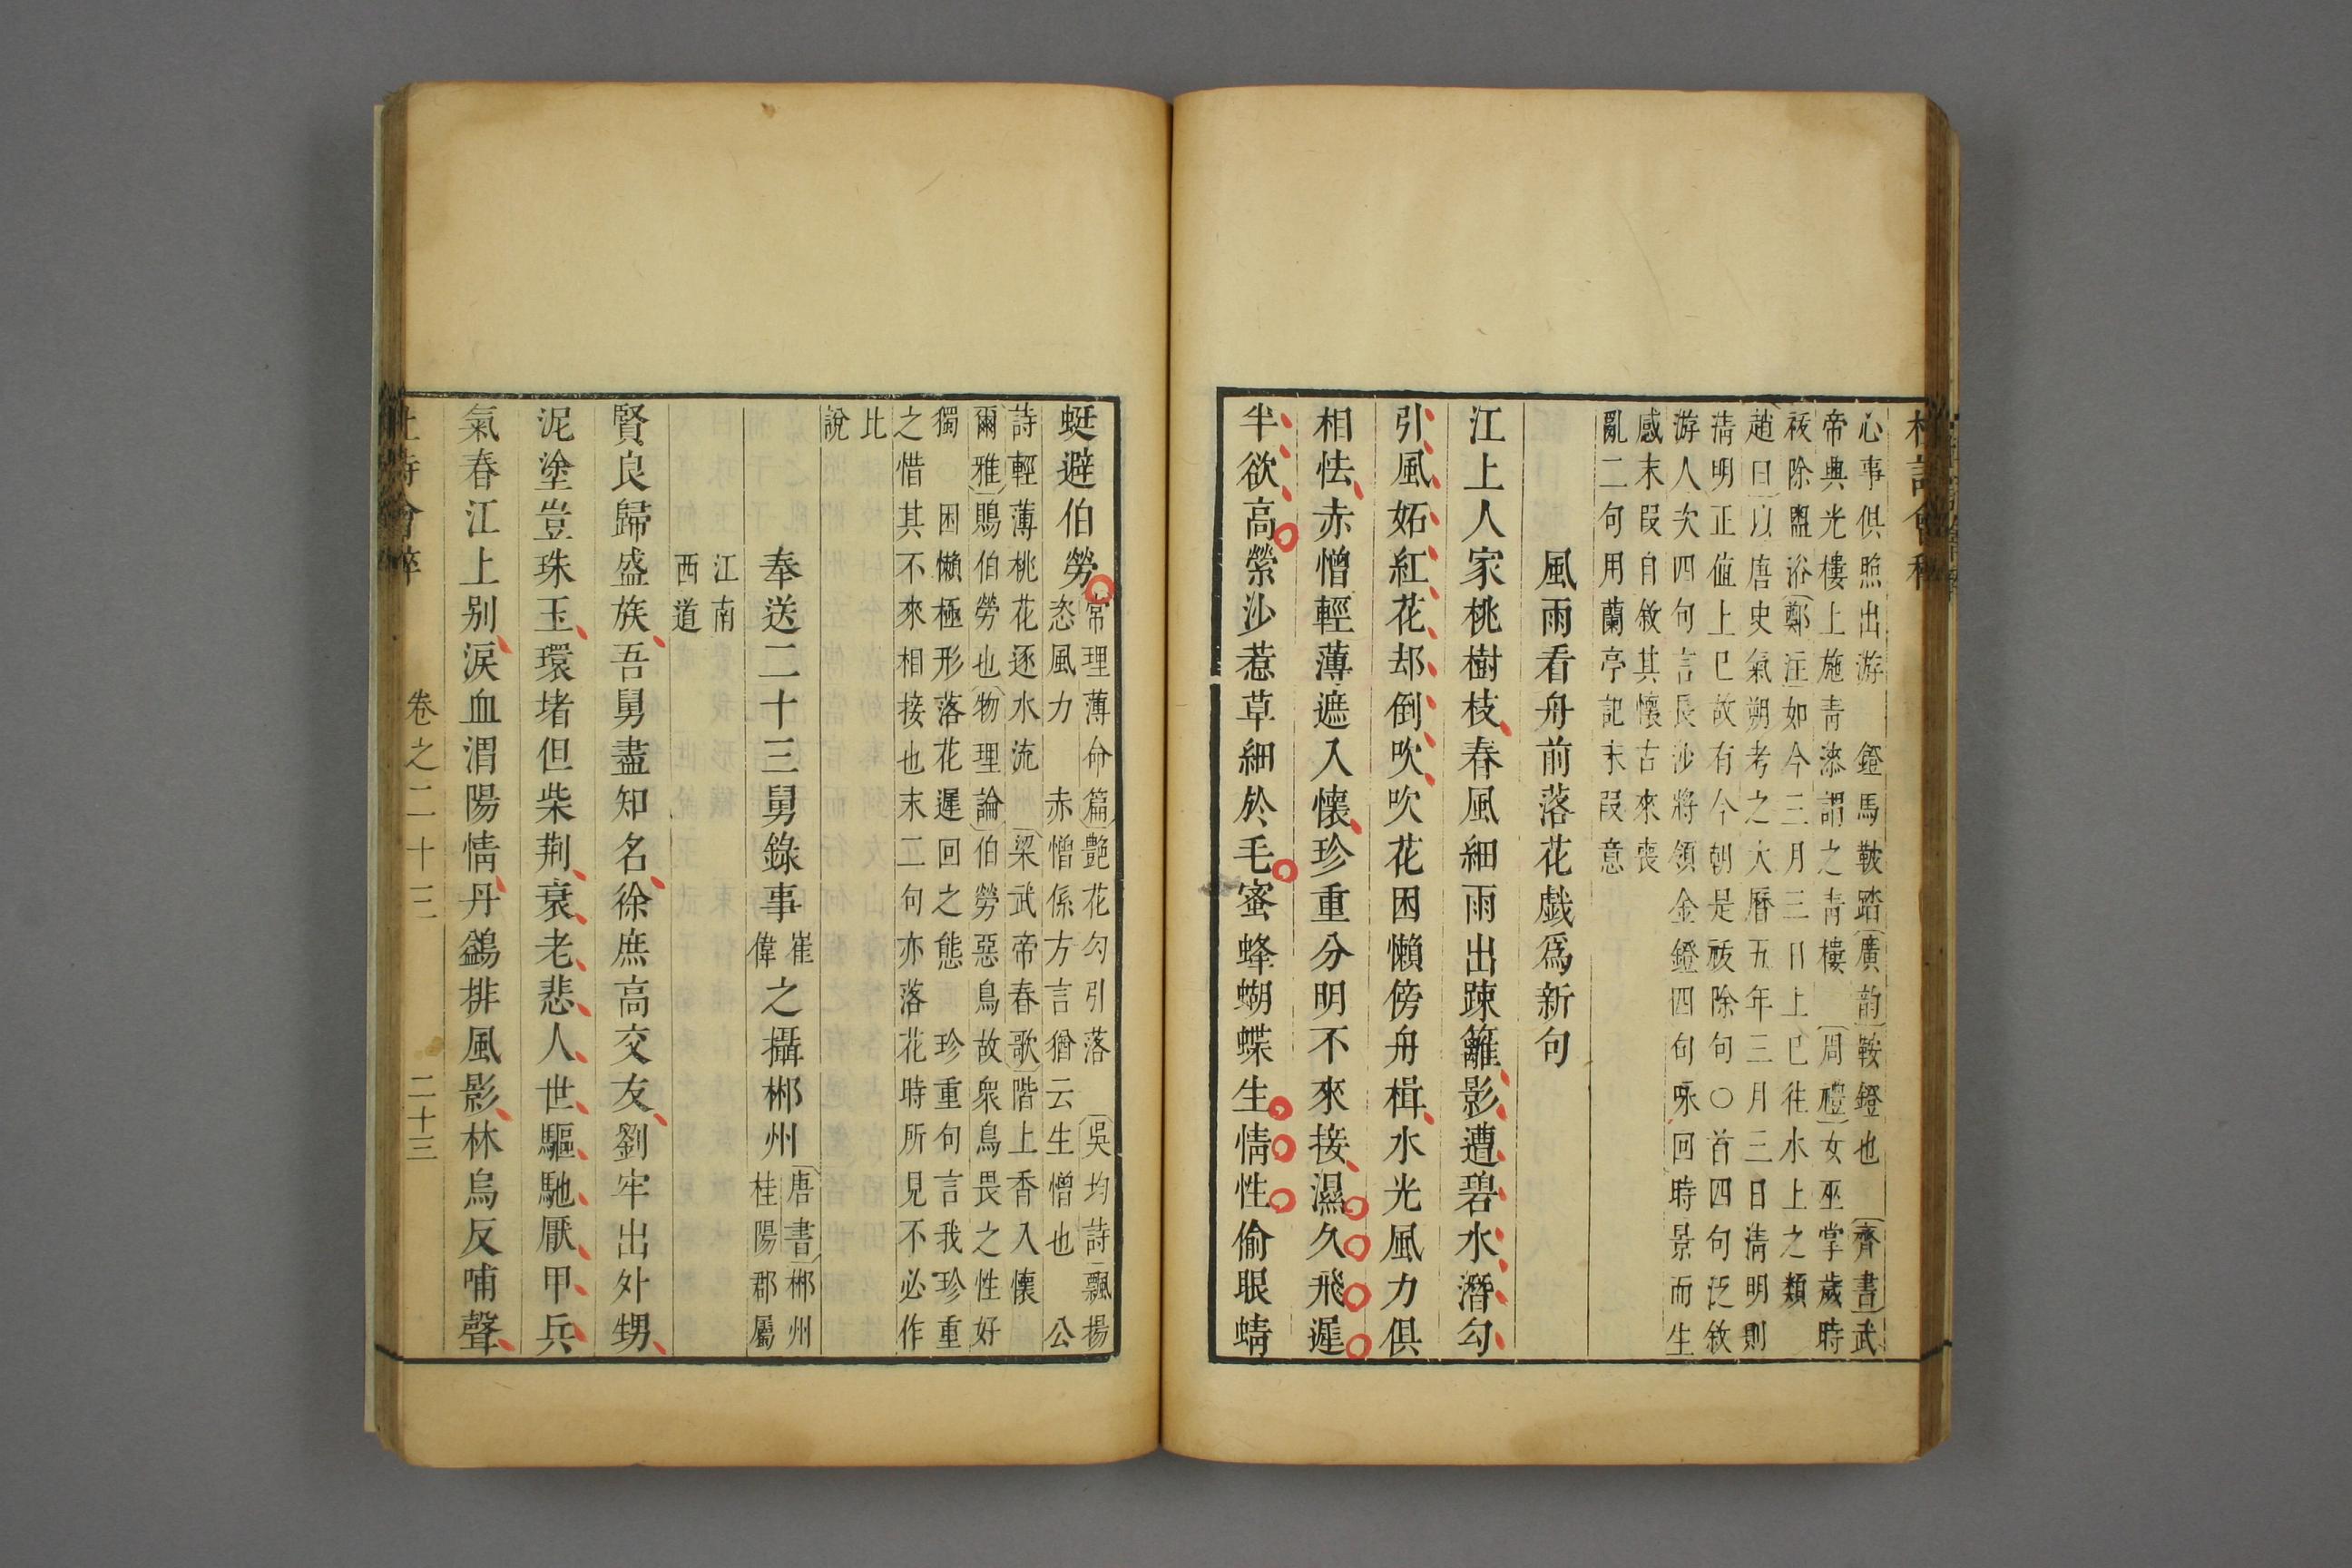 心事俱照出游　鐙馬鞁踏廣韵鞍鐙也　齊書武
帝興光樓上施青漆謂之青樓　周禮女巫掌歲時
祓除釁浴鄭注如今三月三日上巳往水上之類
趙曰以唐史氣朔考之大曆五年三月三日清明則
清明正値上巳故有今朝是祓除句○首四句泛敘
游人次四句言長沙將領金鐙四句咏回時景而生
感末段自敘其懷古來喪
亂二句用蘭亭記末段意
風雨看舟前落花戯爲新句
江上人家桃樹枝春風細雨出疎籬影遭碧水潛勾
引風妬紅花却倒吹吹花困懶傍舟楫水光風力俱
相怯赤憎輕薄遮入懷珍重分明不來接濕久飛遲
半欲高縈沙惹草細於毛蜜蜂蝴蝶生情性偷眼蜻
蜓避伯勞常理薄命篇艶花勾引落　吳均詩飄揚
恣風力　赤憎係方言猶云生憎也　公
詩輕薄桃花逐水流　梁武帝春歌階上香入懷
爾雅鵙伯勞也物理論伯勞惡鳥故衆鳥畏之性好
獨　困懶極形落花遲回之態　珍重句言我珍重
之惜其不來相接也末二句亦落花時所見不必作
比
說
奉送二十三舅錄事崔偉之攝郴州唐書郴州桂陽郡屬
江南
西道
賢良歸盛族吾舅盡知名徐庶高交友劉牢出外甥
泥塗豈珠玉環堵但柴荆衰老悲人世驅馳厭甲兵
氣春江上别淚血渭陽情丹鷁排風影林烏反哺聲
卷之二十三　二十三